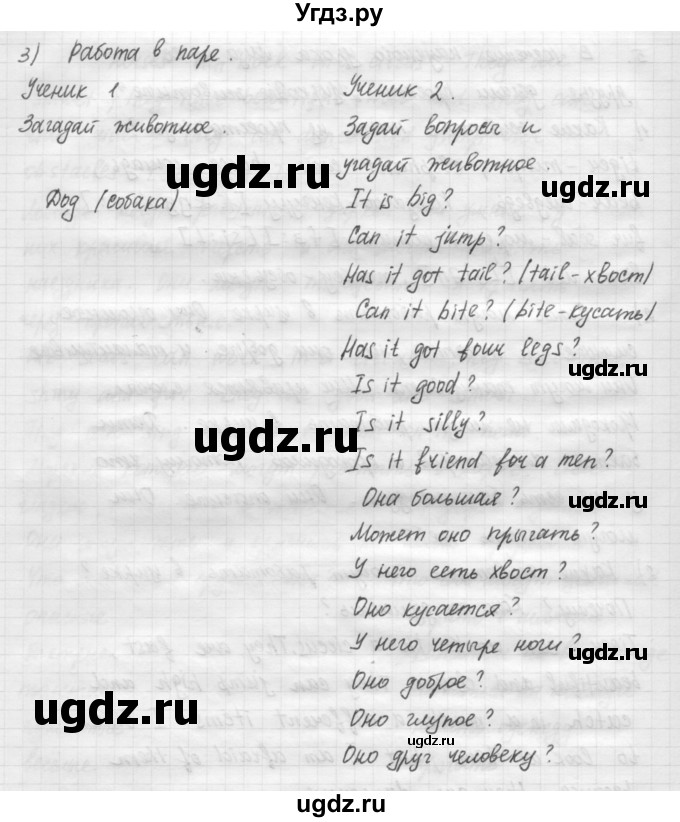 Угдз.ру
3) Работа в паре.
Ученик 1
Загадай животное.
Dog (собака)
Ученик 2.
Задай вопросы и
угадай животное
It is big?
Can it jump?
Has it got tail? (tail-хвост)
Can it bite? (bite-кусать)
Has it got four legs?
Is it good?
Is it silly?
Is it friend for a men?
Она большая?
Может оно прыгать?
У него есть хвост?
Оно кусается?
У него четыре ноги?
Оно доброе?
Оно глупое?
Оно друг человеку?
ugdz.ru
ugdz.ru
ugdz.ru
ugdz.ru
ugdz.ru
ugdz.ru
ugdz.ru
ugdz.ru
ugdz.ru